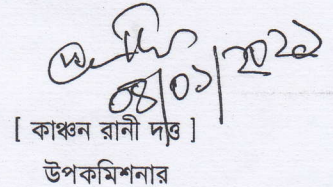 ০৪/০১/২০২১
[ কাঞ্চন রানী দত্ত ]
উপকমিশনার